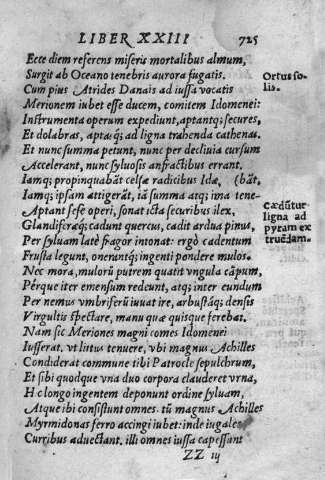 LIBER XXIII 725
Ecce diem referens miseris mortalibus almum,
Surgit ab Oceano tenebris aurora fugatis.
Ortus so-
lis.
Cum pius Atrides Danais ad iussa vocatis
Merionem iubet esse ducem, comitem Idomenei:
Instrumenta operum expediunt, aptantq; secures,
Et dolabras, aptaq́; ad ligna trahenda cathenas.
Et nunc summa petunt, nunc per decliuia cursum
Accelerant, nunc syluosis anfractibus errant.
Iamq; propinquabāt celsæ radicibus Idæ, (bāt,
Iamq; ipsam attigerāt, tā summa atq; ima tene-
Aptant sese operi, sonat icta securibus ilex,
Cædūtur
ligna ad
pyram ex
truēdam.
Glandiferæq; cadunt quercus, cadit ardua pinus,
Per syluam latè fragor intonat: ergò cadentum
Frusta legunt, onerantq; ingenti pondere mulos.
Nec mora, mulorū putrem quatit vngula cāpum,
Pérque iter emensum redeunt, atq; inter eundum
Per nemus vmbriferū iuuat ire, arbustáq; densis
Virgultis spectare, manu quæ quisque ferebat.
Nam sic Meriones magni comes Idomenei
Iusserat, vt littus tenuere, vbi magnus Achilles
Condiderat commune tibi Patrocle sepulchrum,
Et sibi quodque vna duo corpora clauderet vrna,
H c longo ingentem deponunt ordine syluam,
Atque ibi consistunt omnes. tū magnus Achilles
Myrmidonas ferro accingi iubet: inde iugales
Curribus aduectant. illi omnes iussa capessunt
ZZ iij